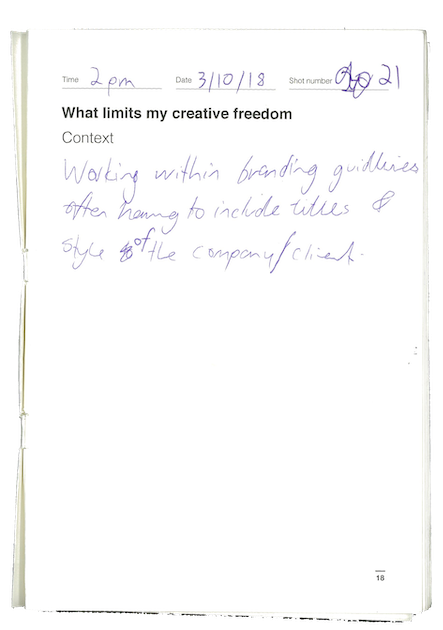 Time 2pm Date 3/10/18 Shot number 21
What limits my creative freedom
Context
Working within branding guidlines
often having to include titles &
style of the company/client.
18